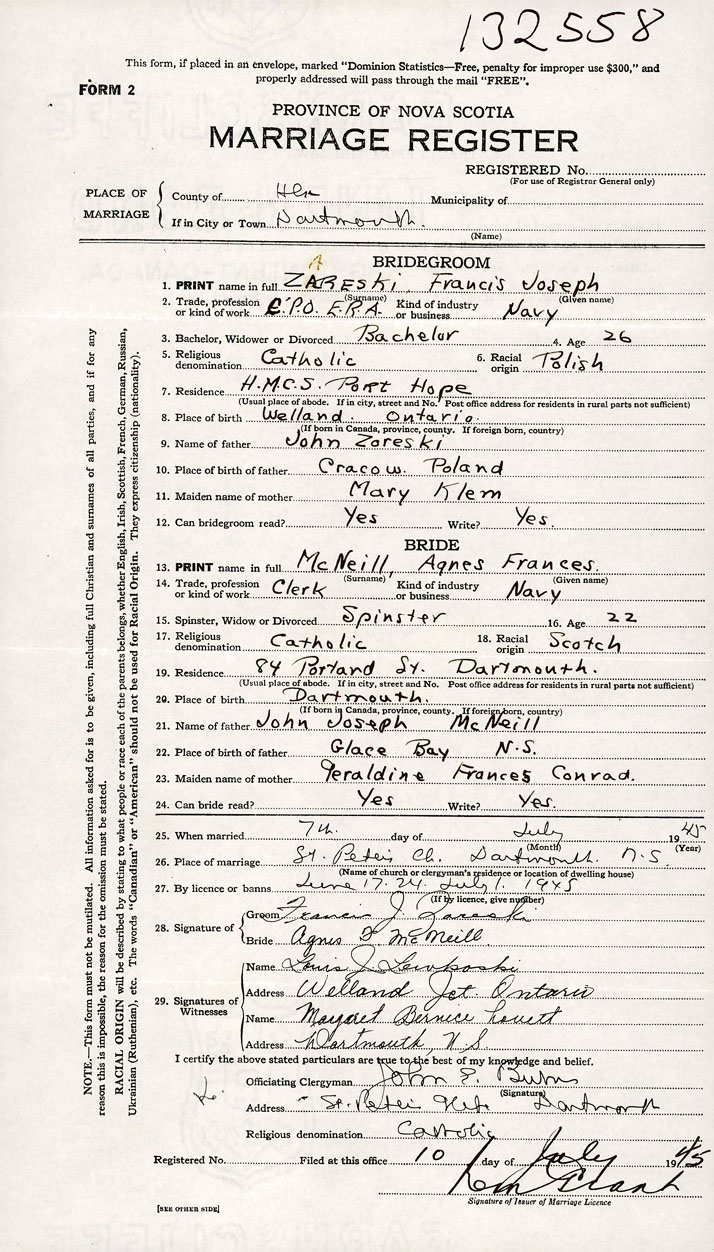 132558
This form, if placed in an envelope, marked "Dominion Statistics—Free, penalty for improper use $300," and
properly addressed will pass through the mail "FREE".
FORM 2
PROVINCE OF NOVA SCOTIA
MARRIAGE REGISTER
REGISTERED No.
(For use of Registrar General only)
PLACE OF MARRIAGE
County of Hfx Municipality of
If in City or Town Dartmouth.
(Name)
BRIDEGROOM
1. PRINT name in full ZARESKI, Francis Joseph
(Surname) (Given name)
2. Trade, profession or kind of work C.P.O. E.R.A. Kind of industry or business Navy
3. Bachelor, Widower or Divorced Bachelor 4. Age 26
5. Religious denomination Catholic 6. Racial origin Polish
7. Residence H.M.C.S. Port Hope
(Usual place of abode. If in city, street and No. Post office address for residents in rural parts not sufficient)
8. Place of birth Welland. Ontario.
(If born in Canada, province, county. If foreign born, country)
9. Name of father John Zareski
10. Place of birth of father Cracow Poland
11. Maiden name of mother Mary Klem
12. Can bridegroom read? Yes Write? Yes.
BRIDE
13. PRINT name in full McNeill, Agnes Frances.
(Surname) (Given name)
14. Trade, profession or kind of work Clerk Kind of industry or business Navy
15. Spinster, Widow or Divorced Spinster 16. Age 22
17. Religious denomination Catholic 18. Racial origin Scotch
19. Residence 84 Portand St. Dartmouth.
(Usual place of abode. If in city, street and No. Post office address for residents in rural parts not sufficient)
20. Place of birth Dartmouth.
(If born in Canada, province, county. If foreign born, country)
21. Name of father John Joseph McNeill
22. Place of birth of father Glace Bay N.S.
23. Maiden name of mother Geraldine Frances Conrad.
24. Can bride read? Yes Write? Yes.
25. When married 7th. day of July 1945
(Month) (Year)
26. Place of marriage St. Peter's Ch. Dartmouth. N.S.
(Name of church or clergyman's residence or location of dwelling house)
27. By licence or banns June 17. 24. July 1. 1945
(If by licence, give number)
28. Signature of
Groom Francis J. Zareski
Bride Agnes F. McNeill
29. Signatures of Witnesses
Name Louis J.
Address Welland Jct Ontario
Name Margaret Bernice Lovett
Address Dartmouth, N.S.
I certify the above stated particulars are true to the best of my knowledge and belief.
Officiating Clergyman John E. Burns
(Signature)
Address St. Peter's Dartmouth
Religious denomination Catholic
Registered No. Filed at this office 10 day of July 1945
Signature of Issuer of Marriage Licence
[SEE OTHER SIDE]
NOTE.—This form must not be mutilated. All information asked for is to be given, including full Christian and surnames of all parties, and if for any
reason this is impossible, the reason for the omission must be stated.
RACIAL ORIGIN will be described by stating to what people or race each of the parents belongs, whether English, Irish, Scottish, French, German, Russian,
Ukrainian (Ruthenian), etc. The words "Canadian" or "American" should not be used for Racial Origin. They express citizenship (nationality).